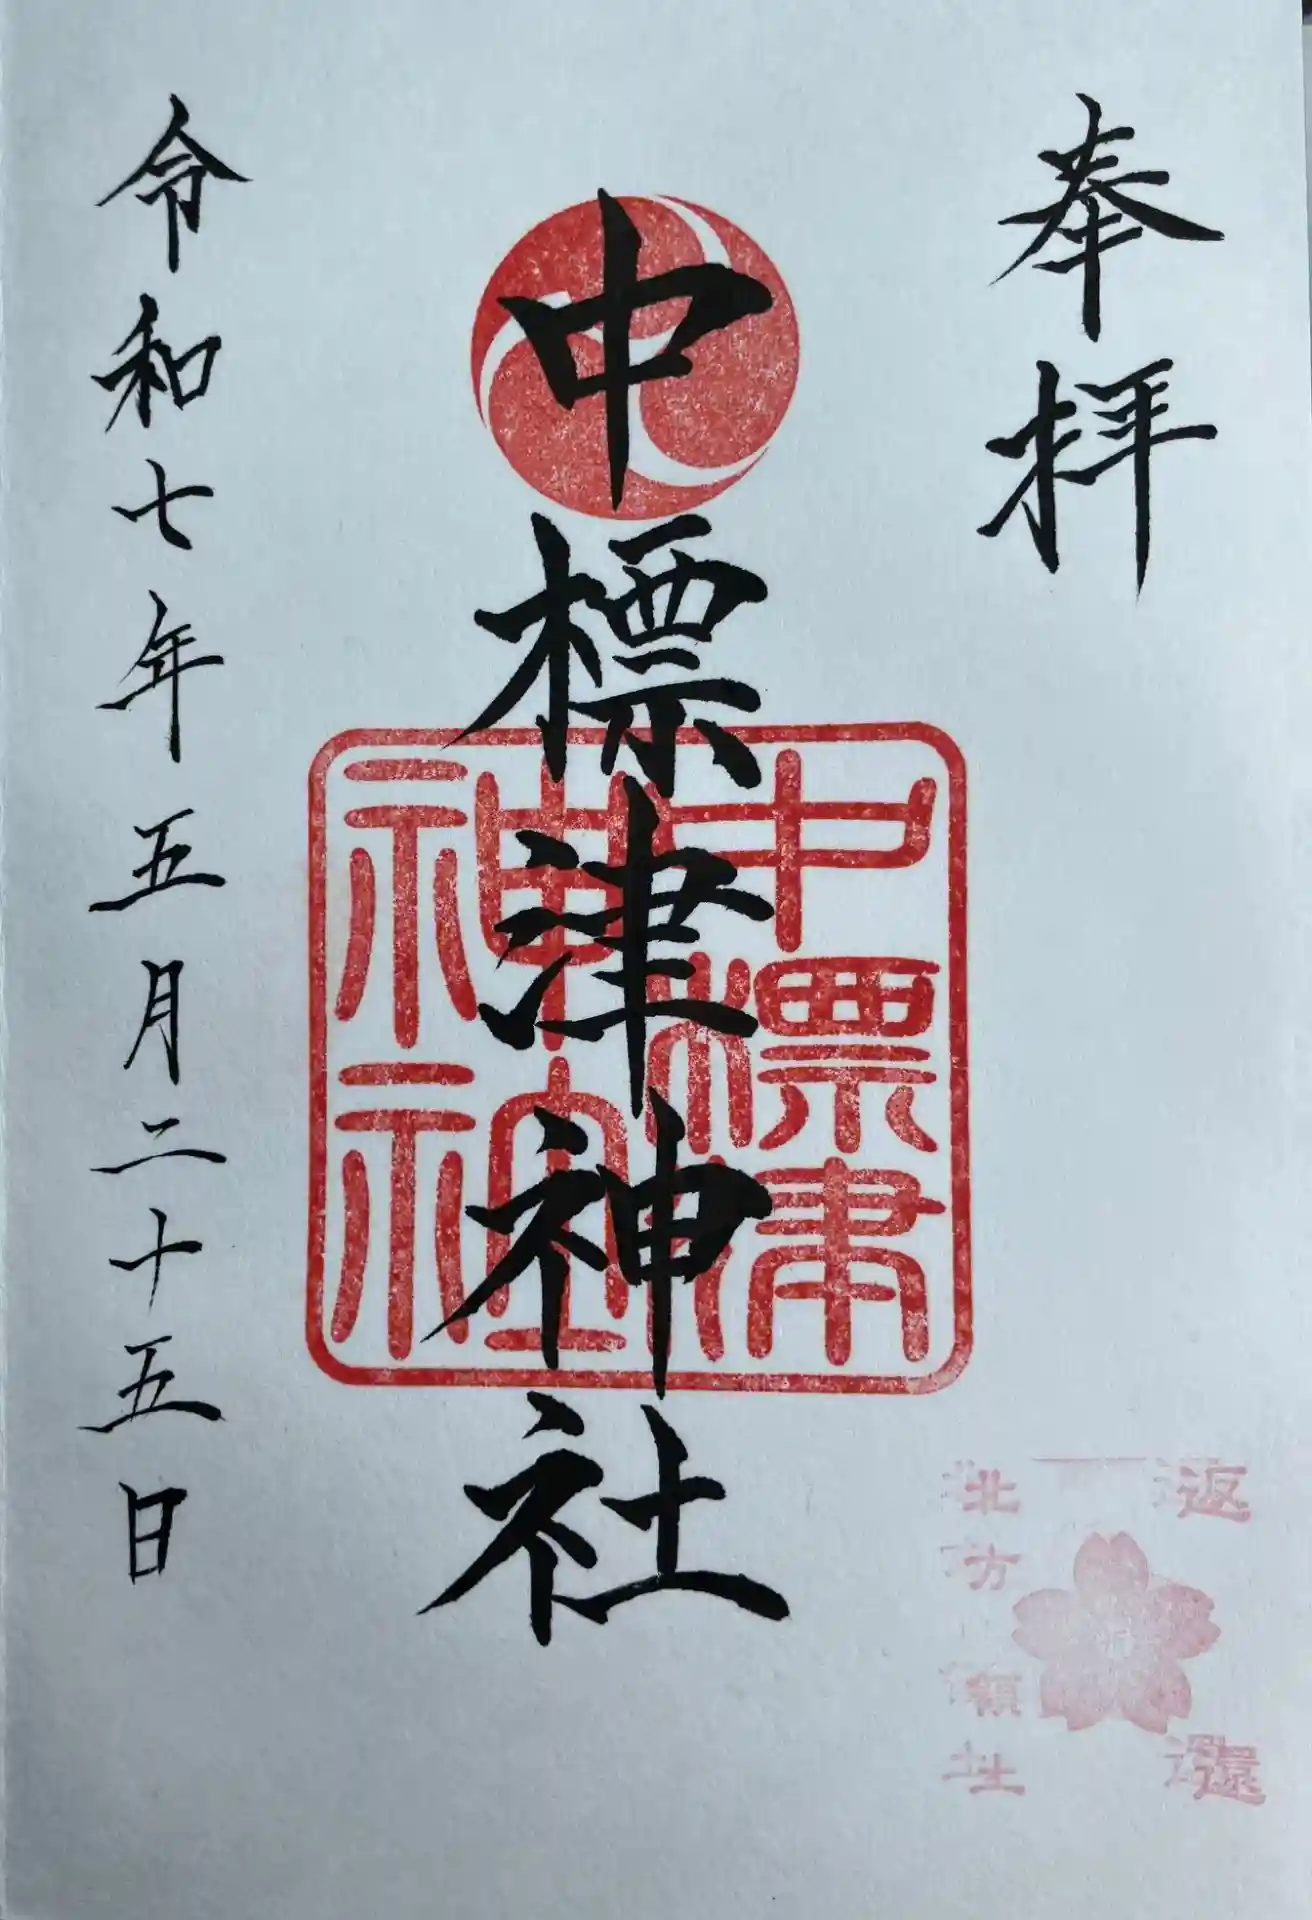 奉拝
返還
北方領土
中標津神社
中標津
神社
令和七年五月二十五日